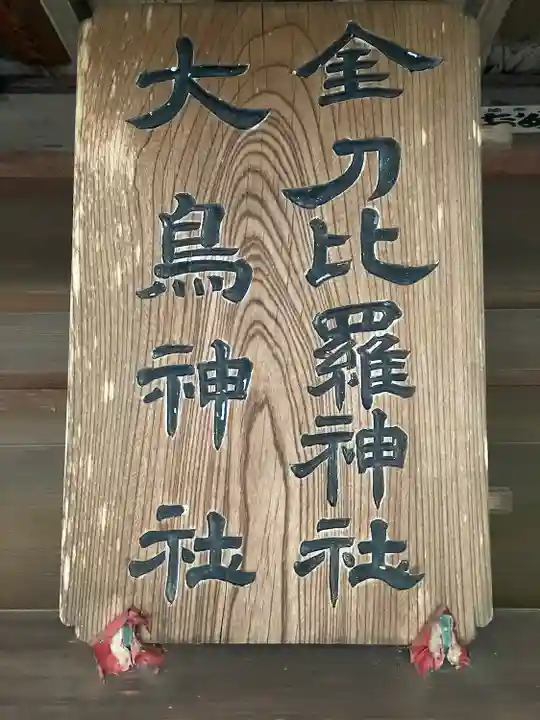 金刀比羅神社
大鳥神社